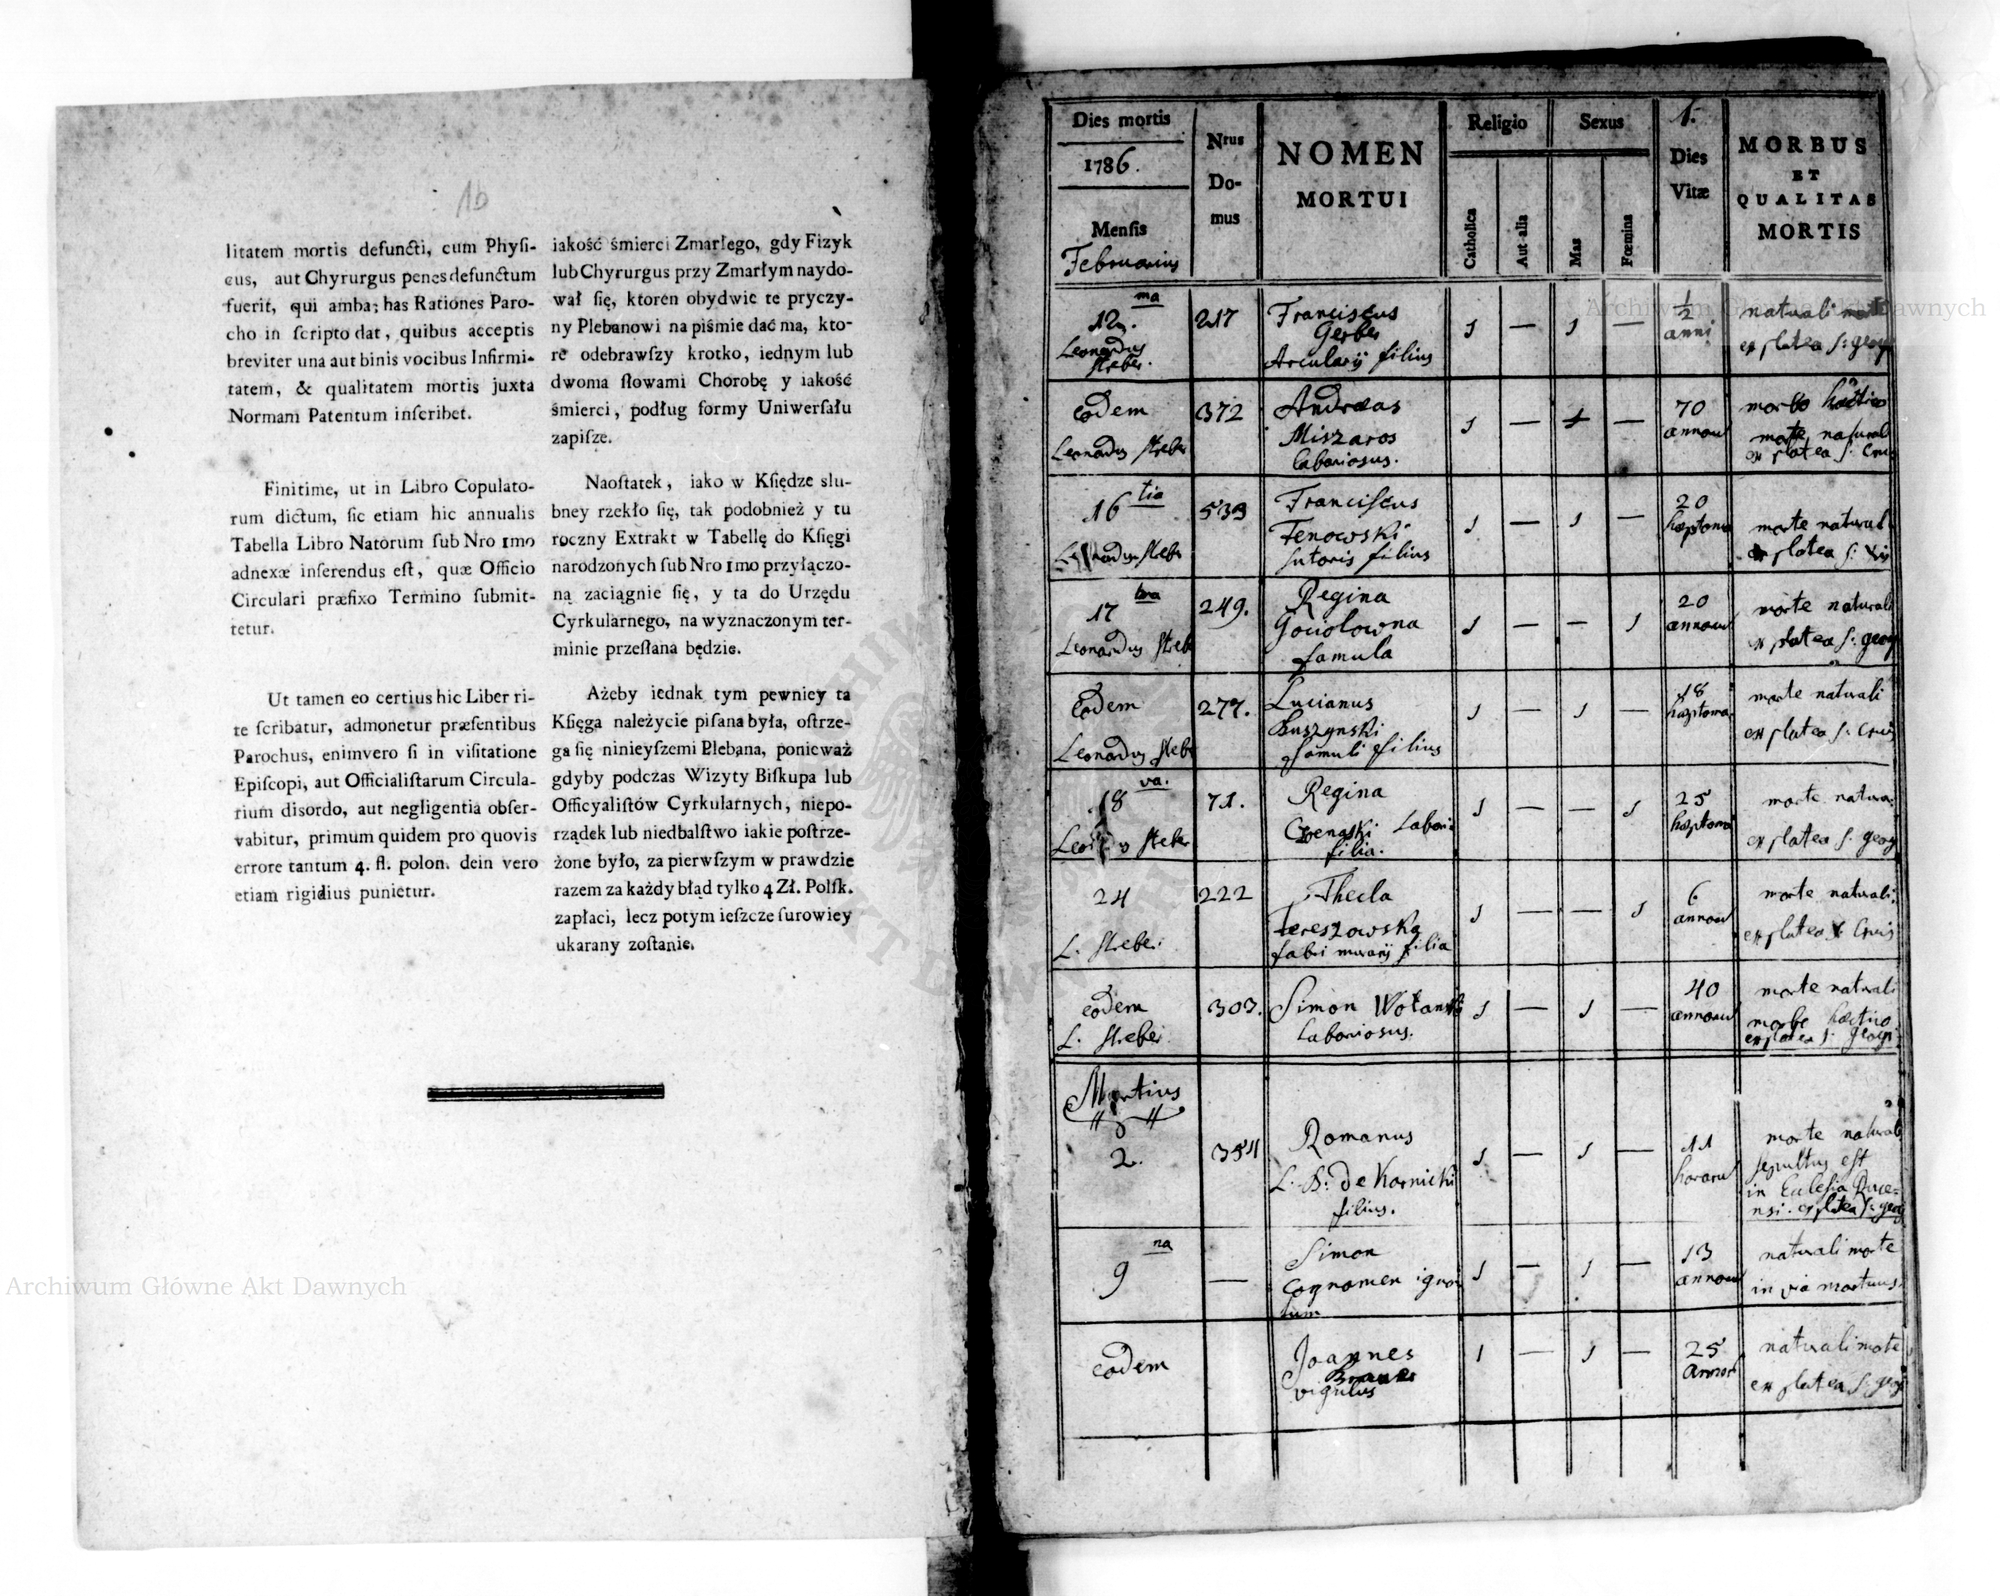 1b
litatem mortis defuncti, cum Phyſi-
cus, aut Chyrurgus penes defunctum
fuerit, qui amba; has Rationes Paro-
cho in ſcripto dat, quibus acceptis
breviter una aut binis vocibus Infirmi-
tatem, & qualitatem mortis juxta
Normam Patentum inſcribet.
Finitime, ut in Libro Copulato-
rum dictum, ſic etiam hic annualis
Tabella Libro Natorum ſub Nro 1mo
adnexæ inſerendus eſt, quæ Officio
Circulari præfixo Termino ſubmit-
tetur.
Ut tamen eo certius hic Liber ri-
te ſcribatur, admonetur præſentibus
Parochus, enimvero ſi in viſitatione
Epiſcopi, aut Officialiſtarum Circula-
rium disordo, aut negligentia obſer-
vabitur, primum quidem pro quovis
errore tantum 4. fl. polon. dein vero
etiam rigidius punietur.
iakość śmierci Zmarłego, gdy Fizyk
lub Chyrurgus przy Zmarłym naydo-
wał się, ktoren obydwie te pryczy-
ny Plebanowi na piśmie dać ma, kto-
re odebrawſzy krotko, iednym lub
dwoma ſłowami Chorobę y iakość
śmierci, podług formy Uniwerſału
zapiſze.
Naoſtatek, iako w Kſiędze slu-
bney rzekło ſię, tak podobnież y tu
roczny Extrakt w Tabellę do Kſięgi
narodzonych ſub Nro 1mo przyłączo-
ną zaciągnie ſię, y ta do Urzędu
Cyrkularnego, na wyznaczonym ter-
minie przeſłana będzie.
Ażeby iednak tym pewniey ta
Kſięga należycie piſana była, oſtrze-
ga ſię ninieyſzemi Plebana, ponieważ
gdyby podczas Wizyty Biſkupa lub
Officyaliſtów Cyrkularnych, niepo-
rządek lub niedbalſtwo iakie poſtrze-
żone było, za pierwſzym w prawdzie
razem za każdy błąd tylko 4 Zł. Polſk.
zapłaci, lecz potym ieſzcze ſurowiey
ukarany zoſtanie.
Dies mortis
1786.
Menſis
Februarius
Nrus
Do-
mus
NOMEN
MORTUI
Religio
Catholica
Aut alia
Sexus
Mas
Fœmina
1.
Dies
Vitæ
MORBUS
ET
QUALITAS
MORTIS
12. ma
Leonardus
Streber.
217
Franciscus
Gerber
Arcularij filius
1 — 1 —
1/2
anni
naturali morte
ex platea S: georg
eodem
Leonardus Streber
372
Andreas
Miszaros
laboriosus.
1 — 1 —
70
annorum
morbo hectico
morte natural
ex platea S. Cruc
16 tia
Streber
539
Franciſcus
Fenowski
ſutoris filius
1 — 1 —
20
morte natural
ex platea S:
17 ma
Leonardus Streb
249.
Regina
Gociolowna
famula
1 — — 1
20
annorum
morte naturali
ex platea S: georg
Eodem
Leonardus Streb
277.
Lucianus
Buszynski
famuli filius
1 — 1 —
18
morte naturali
ex platea S. Cruc
18 va.
Streber
71.
Regina
Labori
filia.
1 — — 1
25
morte natura
ex platea S. georg
24
L. Streber
222
Thecla
Tereszowska
fabri murarij filia
1 — — 1
6
annorum
morte naturali
ex platea S. Cruc
eodem
L. Streber
303.
Simon Wołanski
Laboriosus.
1 — 1 —
40
annorum
morte naturali
morbo hectico
ex platea S. georgi
Martius
2.
354
Romanus
L. B: de Karnicki
filius.
1 — 1 —
11
horarum
morte naturali
sepultus eſt
in Eccleſia
ex platea S: georg
9 na
—
Simon
Cognomen igno
tum
1 — 1 —
13
annorum
naturali morte
in via mortuus
eodem
Joannes
vigulus
1 — 1 —
25
annor
naturali morte
ex platea S: georg
Archiwum Główne Akt Dawnych
Archiwum Główne Akt Dawnych